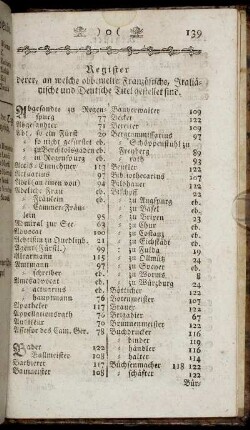 ) o ( 139
Register
derer, an welche obbemelte Französische, Italiä-
nische und Deutsche Titel gestellet sind.
Abgesandte zu Regen-
spurg 77
Abgesandter 71
Abt, so ein Fürst 29
so nicht gefürstet eb.
zu Berchtolsgaden eb.
in Regenspurg eb.
Accis-Einnehmer 111
Actuarius 97
Adel (an einen von) 94
Adeliche Frau eb.
Fräulein eb.
Cammer-Fräu-
lein 95
Admiral zur See 63
Advocat 100
Aebtißin zu Quedlinb. 21
Agent (Fürstl.) 99
Altarmann 115
Amtmann 97
schreiber eb.
Amtsadvocat eb.
actuarius eb.
hauptmann 76
Apotheker 117
Appellationsrath 70
Auditeur 70
Assessor des Cam. Ger. 78
Bader 122
Ballmeister 108
Barbierer 117
Baumeister 108
Bauverwalter 109
Becker 122
Bereiter 109
Bergcommissarius 97
Schöppenstuhl zu
Freyberg 109
rath 93
Beutler 122
Bibliothecarius 107
Bildhauer 122
Bischoff
zu Augspurg eb.
zu Basel eb.
zu Brixen 23
zu Chur eb.
zu Costanz eb.
zu Eichstädt eb.
zu Fulda 29
zu Olmütz 24
zu Speyer eb.
zu Worms 8
zu Würzburg 24
Böttcher 122
Botenmeister 107
Brauer 122
Brigadier 67
Brunnenmeister 122
Buchdrucker 116
binder 119
händler 116
halter 114
Büchsenmacher 118 122
schäfter 122
Bür⸗